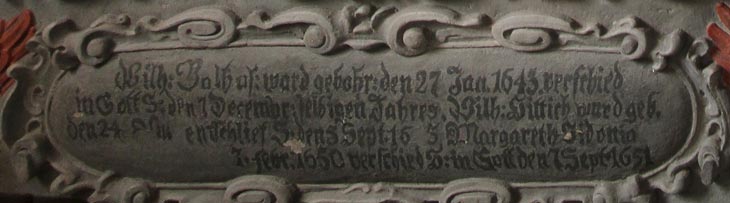 Wilh: Balthas: ward gebohr: den 27 Jan. 1643. verschied
in Gott S: den 7 Decembr: selbigen Jahres. Wilh: Hittich ward geb.
den 24. entschlief S: den 5 Sept: 16 Margareth Sidonia
1650 verschied S: in Gott den 7 Sept: 1651